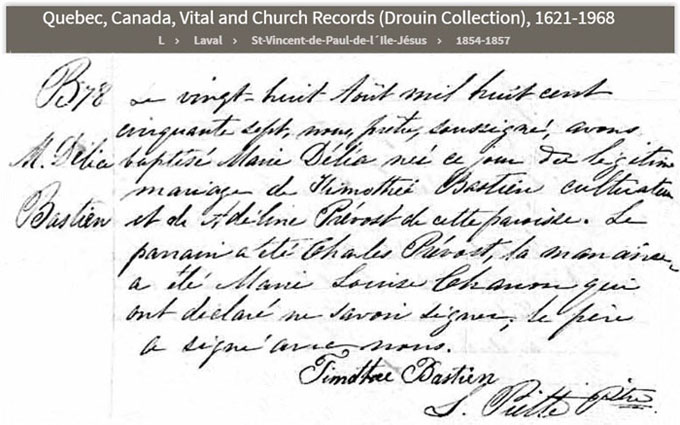 Quebec, Canada, Vital and Church Records (Drouin Collection), 1621-1968
L › Laval › St-Vincent-de-Paul-de-l´Ile-Jésus › 1854-1857
B78
M. Délia
Bastien
Le vingt-huit Août mil huit cent
cinquante sept, nous, prêtre, soussigné, avons
baptisé Marie Délia née ce jour du légitime
mariage de Timothée Bastien cultivateur
et de Adéline Prévost de cette paroisse. Le
parrain a été Charles Prévost, la marraine
a été Marie Louise Charron qui
ont déclaré ne savoir signer, le père
a signé avec nous.
Timothée Bastien
Piette ptre